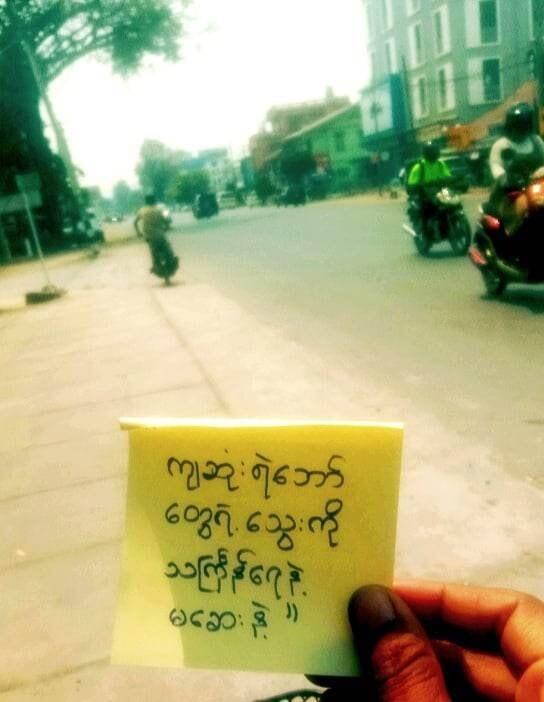 ကျဆုံးရဲဘော်
တွေရဲ့သွေးကို
သင်္ကြန်ရေနဲ့
မဆေးနဲ့။